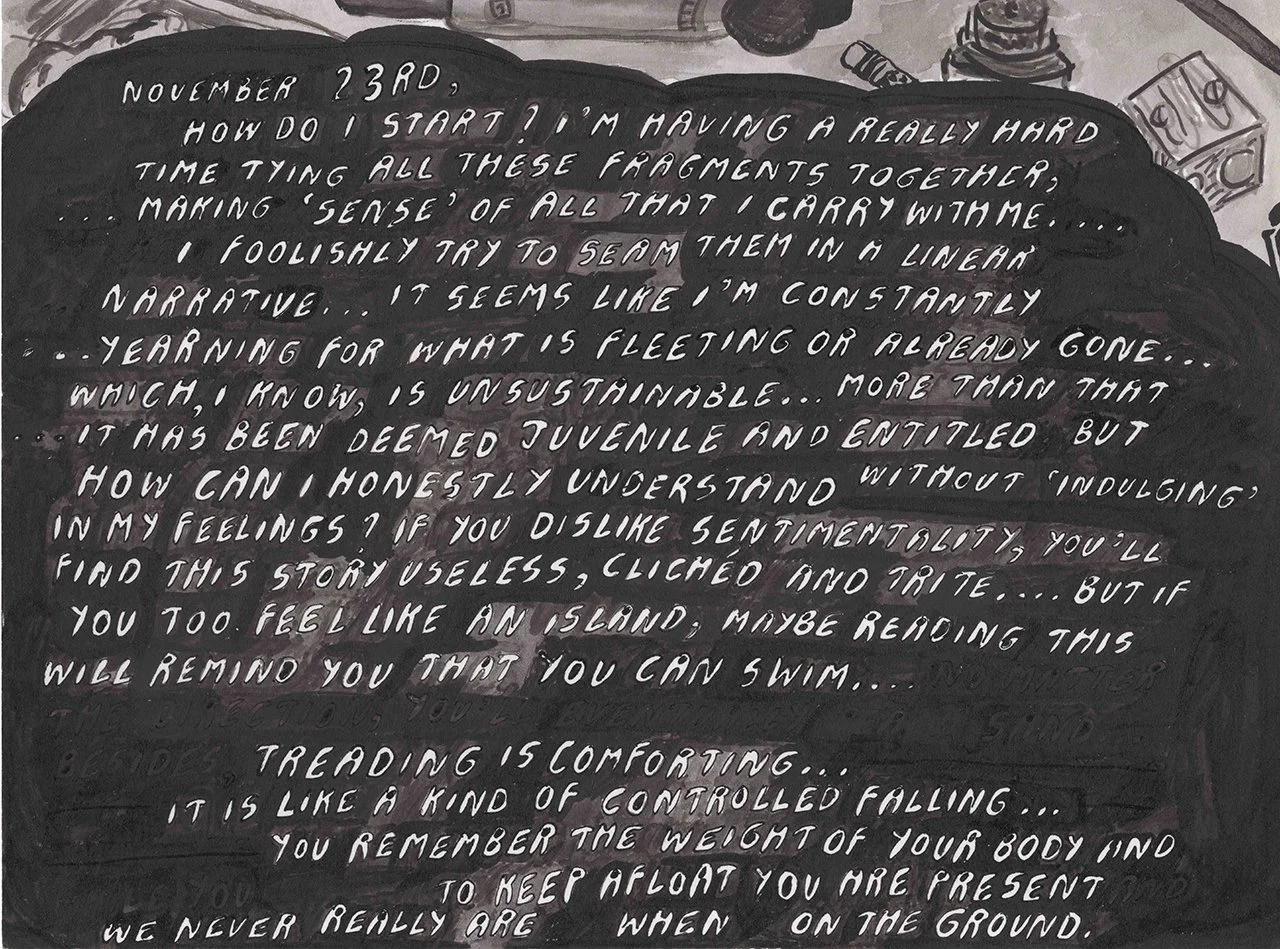 NOVEMBER 23RD,
HOW DO I START? I'M HAVING A REALLY HARD
TIME TYING ALL THESE FRAGMENTS TOGETHER;
... MAKING 'SENSE' OF ALL THAT I CARRY WITH ME....
I FOOLISHLY TRY TO SEAM THEM IN A LINEAR
NARRATIVE... IT SEEMS LIKE I'M CONSTANTLY
...YEARNING FOR WHAT IS FLEETING OR ALREADY GONE...
WHICH, I KNOW, IS UNSUSTAINABLE... MORE THAN THAT
...IT HAS BEEN DEEMED JUVENILE AND ENTITLED BUT
HOW CAN I HONESTLY UNDERSTAND WITHOUT 'INDULGING'
IN MY FEELINGS? IF YOU DISLIKE SENTIMENTALITY, YOU'LL
FIND THIS STORY USELESS, CLICHÉD AND TRITE.... BUT IF
YOU TOO FEEL LIKE AN ISLAND, MAYBE READING THIS
WILL REMIND YOU THAT YOU CAN SWIM.... NO MATTER
THE DIRECTION, YOU'LL EVENTUALLY SAND
BESIDES, TREADING IS COMFORTING...
IT IS LIKE A KIND OF CONTROLLED FALLING...
YOU REMEMBER THE WEIGHT OF YOUR BODY AND
TO KEEP AFLOAT YOU ARE PRESENT AND
WE NEVER REALLY ARE WHEN ON THE GROUND.